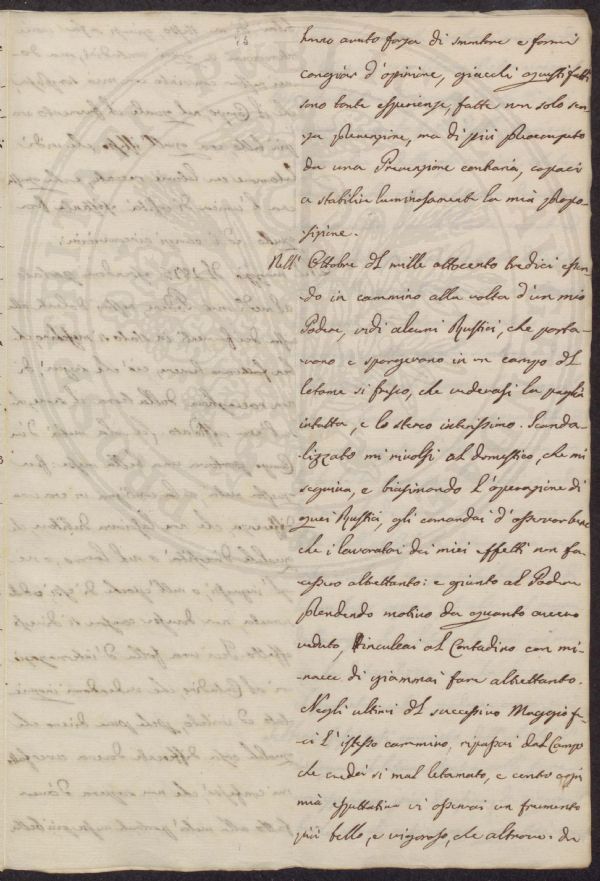 hanno avuto forza di smentire e farmi
cangiar d'opinione, giacchè questi fatti
sono tante esperienze, fatte non solo sen-
za prevenzione, ma di più preoccupato
da una Prevenzione contraria, capaci
a stabilir luminosamente la mia propo-
sizione.
Nell' Ottobre del mille ottocento tredici essen-
do in cammino alla volta d'un mio
Podere, vidi alcuni Rustici, che porta-
vano e spargevano in un campo del
letame sì fresco, che vedevasi la paglia
intatta, e lo sterco interissimo. Scanda-
lizzato mi rivolsi al domestico, che mi
seguiva, e biasimando l'operazione di
quei Rustici, gli comandai d'osservar bene
che i lavoratori dei miei effetti non fa-
cessero altrettanto: e giunto al Podere
prendendo motivo da quanto aveva
veduto, inculcai al Contadino con mi-
nacce di giammai fare altrettanto.
Negli ultimi del successivo Maggio fe-
ci l'istesso cammino, ripassai dal Campo
che credei sì mal letamato, e contro ogni
mia espettativa vi osservai un frumento
più bello, e vigoroso, che altrove. da